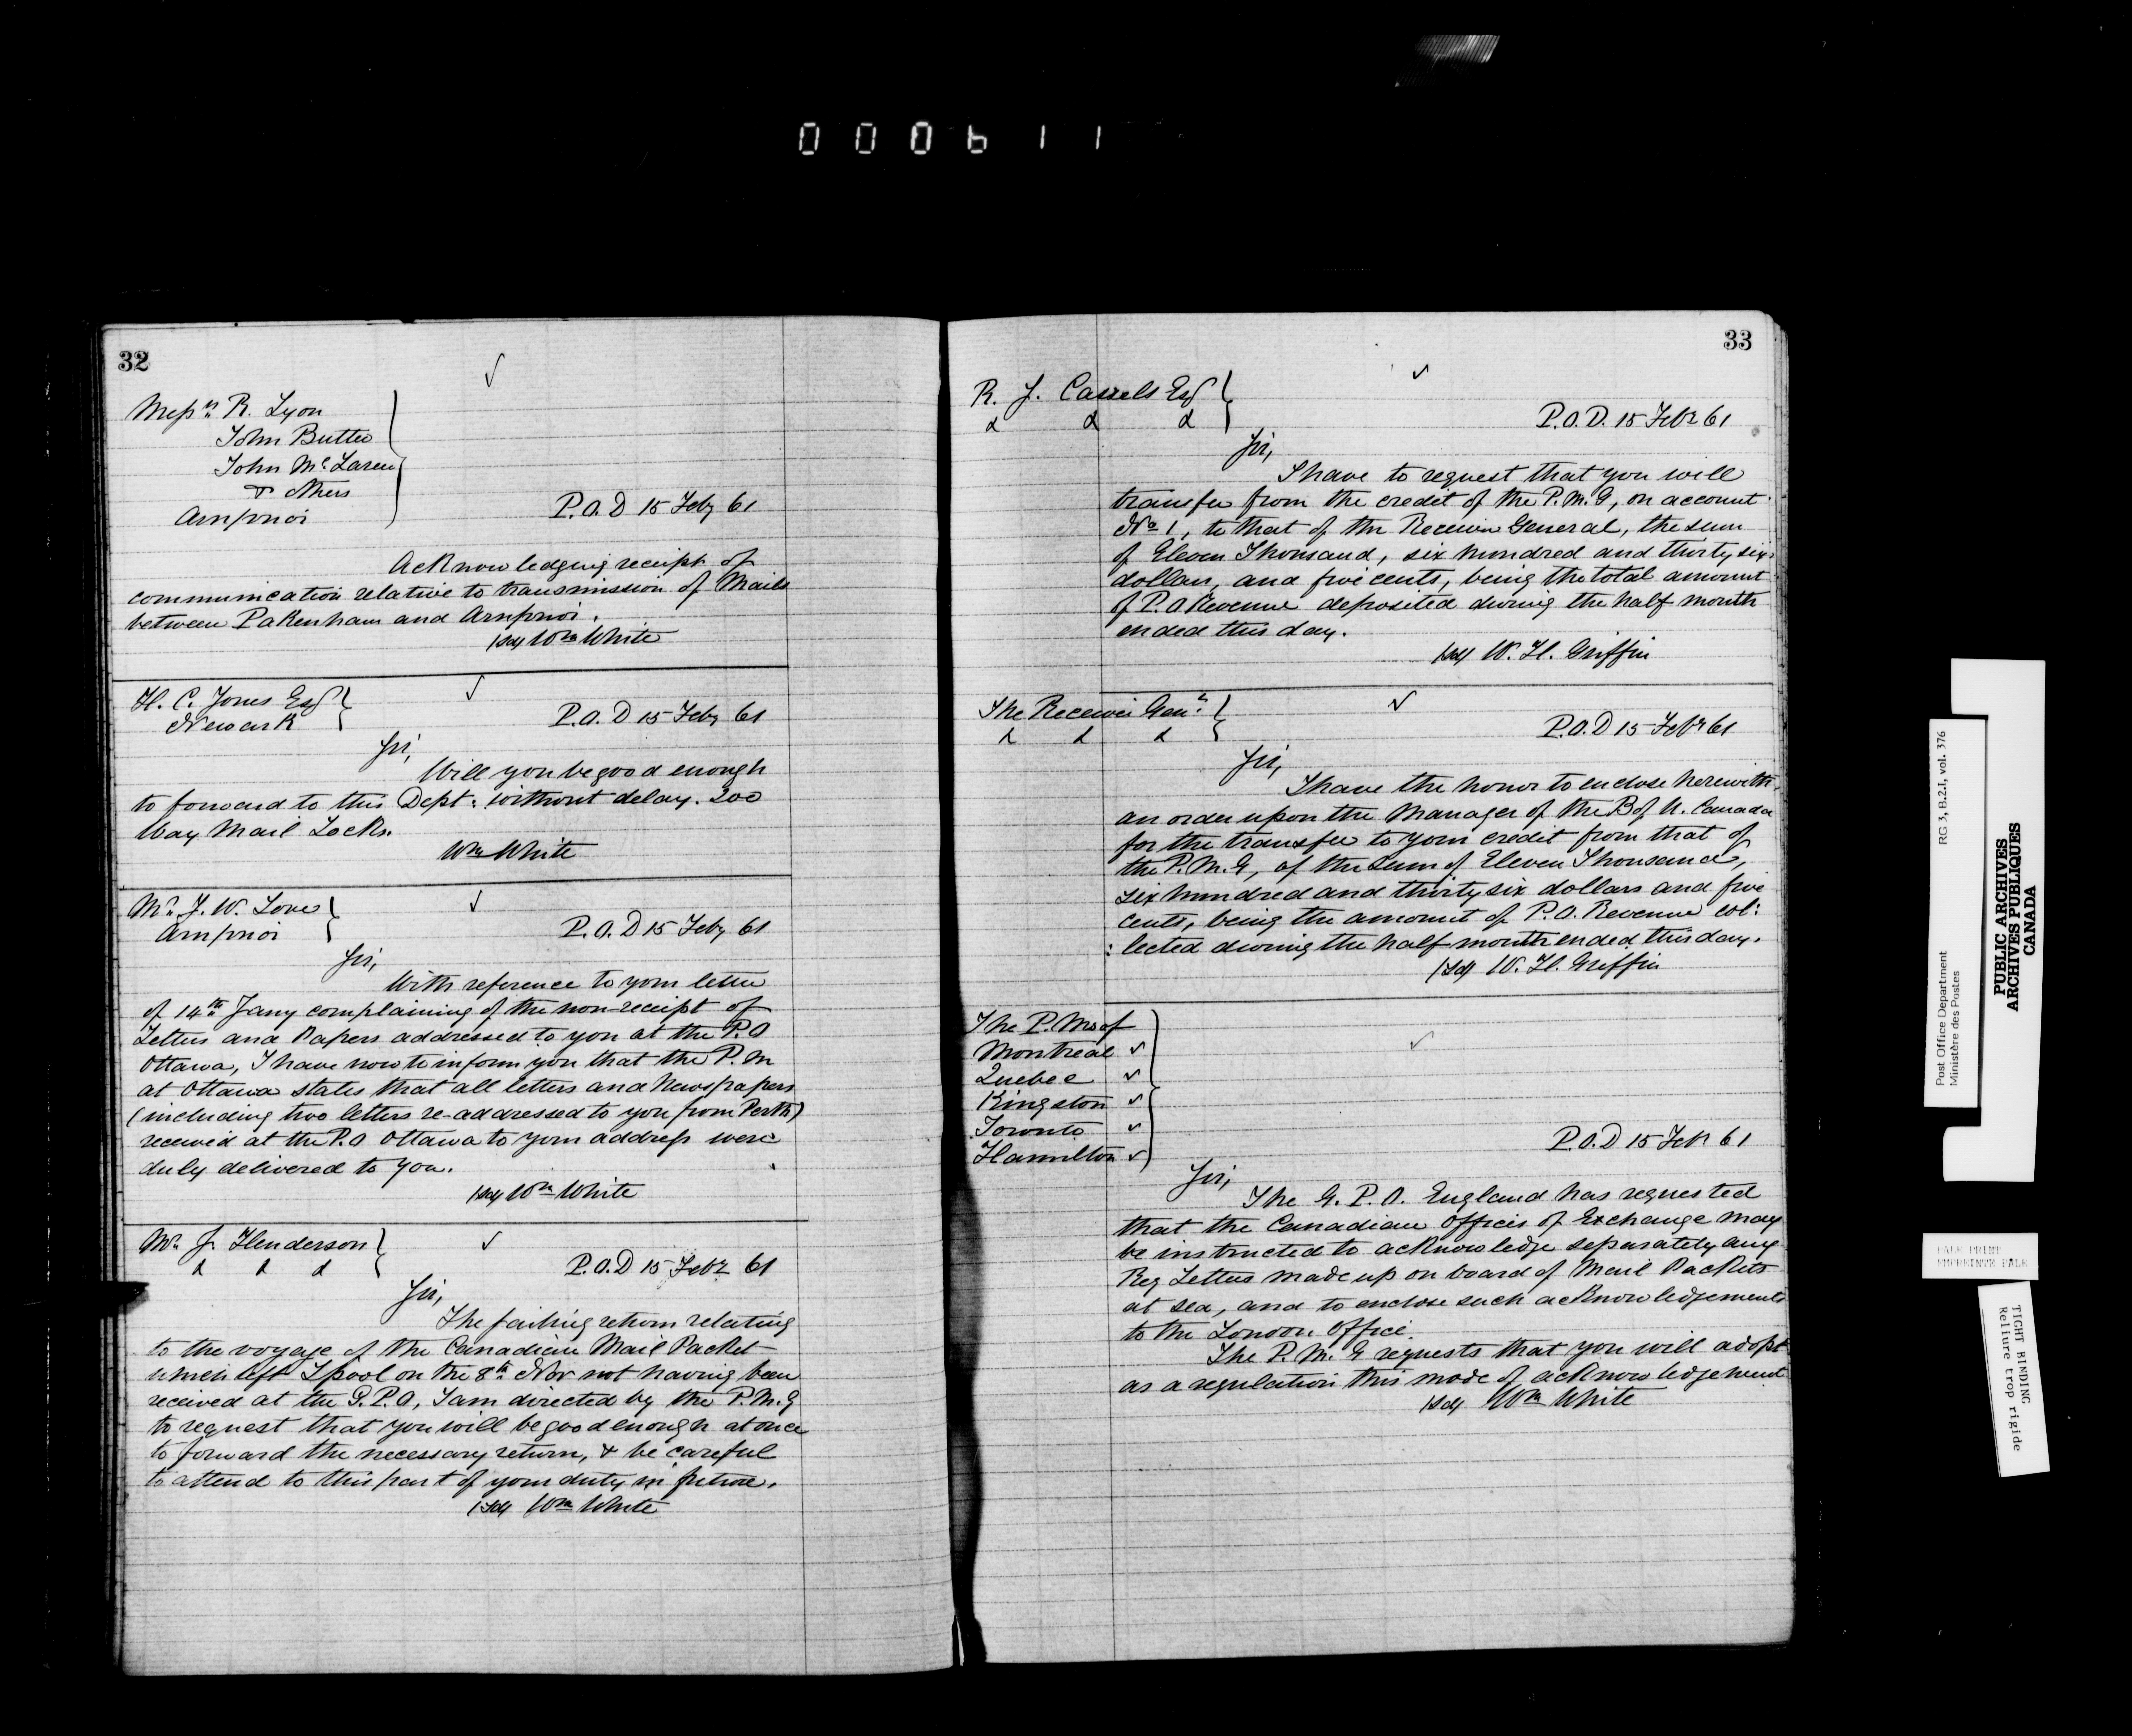 000611
32
Messrs R. Lyon
John Butler
John McLaren
& others
Arnprior
P.O.D 15 Feby 61
Acknowledging receipt of
communication relative to transmission of Mails
between Pakenham and Arnprior.
/sd/ Wm White
H. C. Jones Esq
Newark
P.O.D 15 Feby 61
Sir,
Will you be good enough
to forward to this Dept: without delay. 200
Way Mail Locks.
Wm White
Mr. J. W. Love
Arnprior
P.O.D 15 Feby 61
Sir,
With reference to your letter
of 14th Jany complaining of the non-receipt of
Letters and Papers addressed to you at the P.O
Ottawa, I have now to inform you that the P.M
at Ottawa states that all letters and Newspapers
(including two letters re-addressed to you from Perth)
received at the P.O Ottawa to your address were
duly delivered to you.
/sd/ Wm White
Mr J. Henderson
& & &
P.O.D 15 Febr 61
Sir,
The sailing return relating
to the voyage of the Canadian Mail Packet
which left Lpool on the 8th Nov not having been
received at the G.P.O, I am directed by the P.M.G
to request that you will be good enough at once
to forward the necessary return, & be careful
to attend to this part of your duty in future.
/sd/ Wm White
33
R. J. Cassels Esq
& & &
P.O.D. 15 Febr 61
Sir,
I have to request that you will
transfer from the credit of the P.M.G, on account
No 1, to that of the Receiver General, the sum
of Eleven Thousand, six hundred and thirty six
dollars, and five cents, being the total amount
of P.O Revenue deposited during the half month
ended this day.
/sd/ W. H. Griffin
The Receiver Genl
& & &
P.O.D 15 Febr 61
Sir,
I have the honor to enclose herewith,
an order upon the Manager of the B of U. Canada
for the transfer to your credit from that of
the P.M.G, of the sum of Eleven Thousand,
six hundred and thirty six dollars and five
cents, being the amount of P.O. Revenue col:
:lected during the half month ended this day.
/sd/ W. H. Griffin
The P.Ms of
Montreal
Quebec
Kingston
Toronto
Hamilton
P.O.D 15 Febr 61
Sir,
The G.P.O. England has requested
that the Canadian Offices of Exchange may
be instructed to acknowledge separately any
Reg Letters made up on board of Mail Packets
at sea, and to enclose such acknowledgements
to the London Office.
The P.M.G requests that you will adopt
as a regulation this mode of acknowledgement
/sd/ Wm White
Post Office Department
Ministère des Postes
RG 3, B.2.I, vol. 376
PUBLIC ARCHIVES
ARCHIVES PUBLIQUES
CANADA
PALE PRINT
EMPREINTE PALE
TIGHT BINDING
Reliure trop rigide